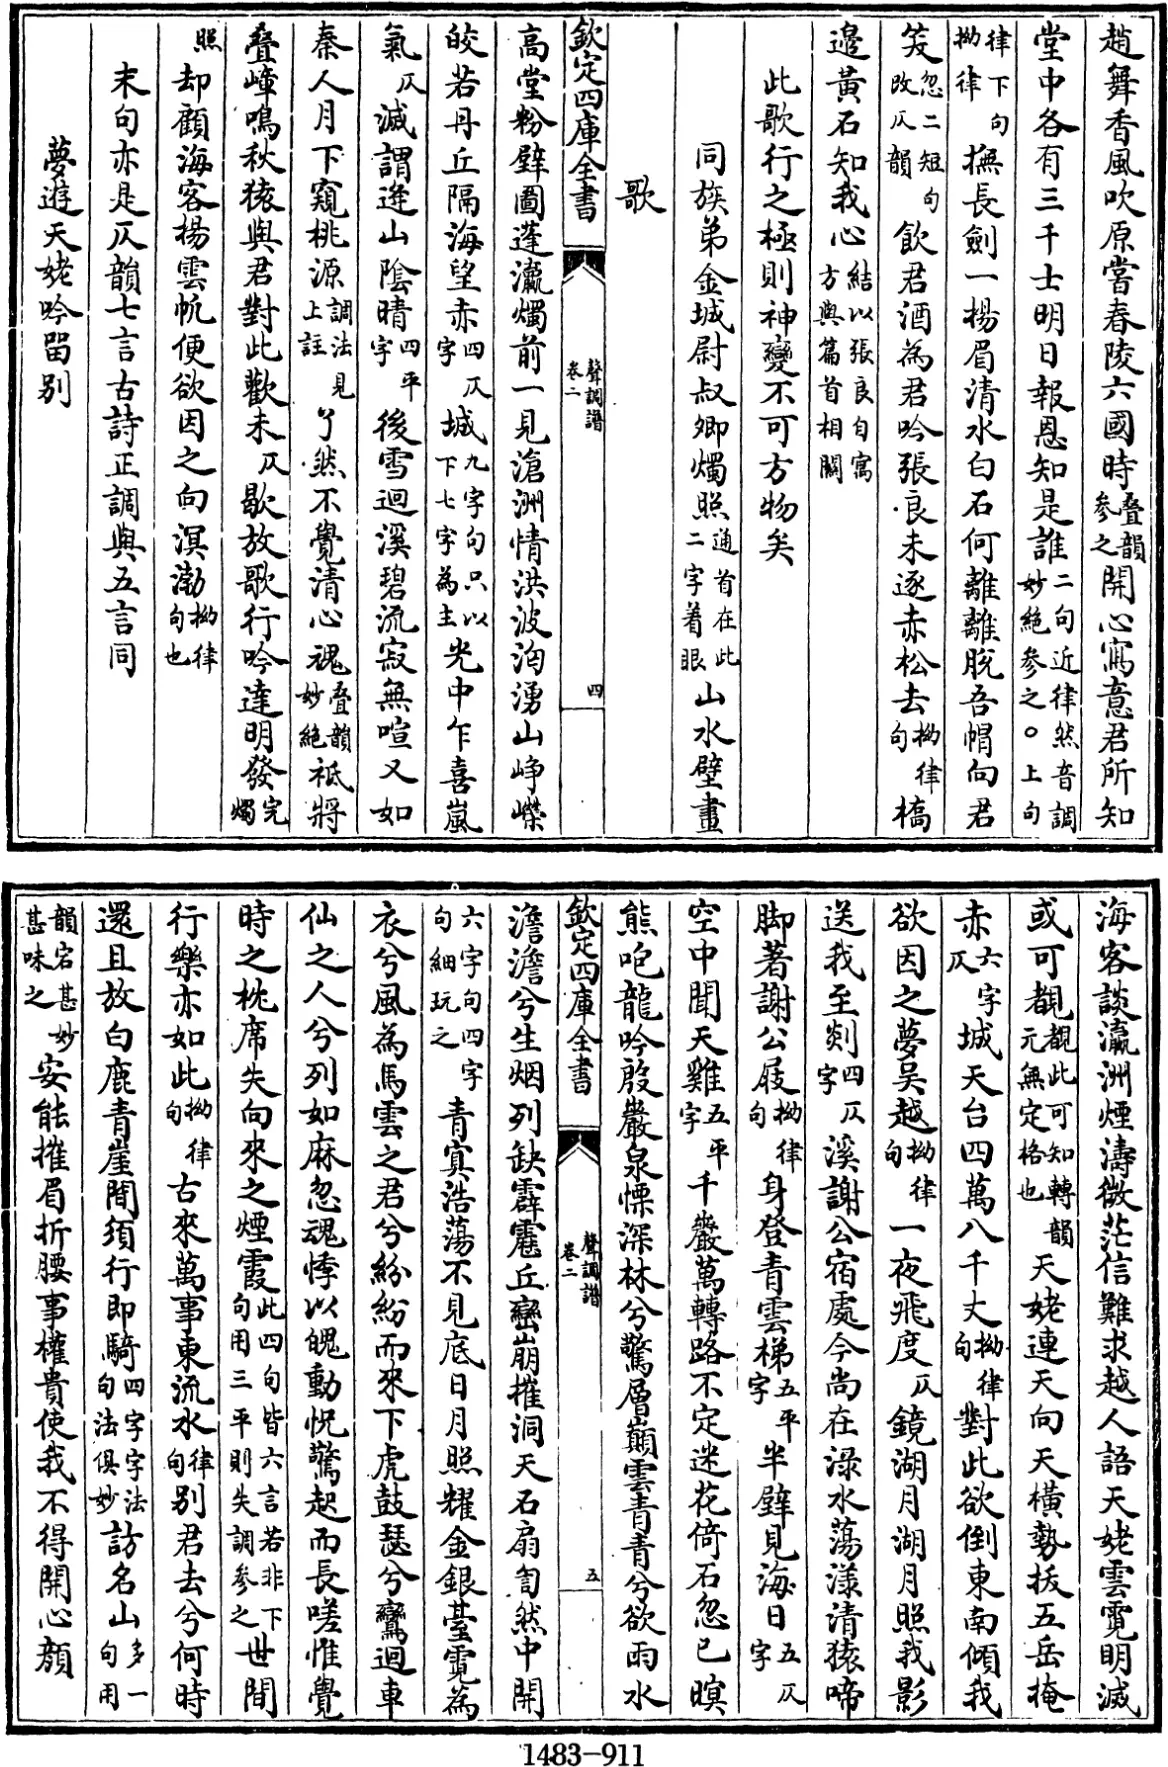 趙舞香風吹原嘗春陵六國時疊韻參之開心寫意君所知
堂中各有三千士明日報恩知是誰二句近律然音調妙絶參之○上句
律下句拗律撫長劍一揚眉清水白石何離離脫吾帽向君
笑忽二短句改仄韻飲君酒為君吟張良未逐赤松去拗律句橋
邉黃石知我心結以張良自寓方與篇首相關
此歌行之極則神變不可方物矣
同族弟金城尉叔卿燭照通首在此二字着眼山水壁畫
歌
欽定四庫全書
聲調譜
卷二
四
高堂粉壁圖蓬瀛燭前一見滄洲情洪波洶湧山崢嶸
皎若丹丘隔海望赤四仄字城九字句只以下七字為主光中乍喜嵐
氣仄滅謂逢山陰晴四平字後雪迴溪碧流寂無喧又如
秦人月下窺桃源調法見上註了然不覺清心魂疊韻妙絶祗將
疊嶂鳴秋猿與君對此歡未仄歇放歌行吟達明發完燭
照却顧海客揚雲帆便欲因之向溟渤拗律句也
末句亦是仄韻七言古詩正調與五言同
夢遊天姥吟留别
海客談瀛洲煙濤微茫信難求越人語天姥雲霓明滅
或可覩觀此可知轉韻元無定格也天姥連天向天橫勢拔五岳掩
赤六字仄城天台四萬八千丈拗律句對此欲倒東南傾我
欲因之夢吳越拗律句一夜飛度仄鏡湖月湖月照我影
送我至剡四仄字溪謝公宿處今尚在渌水蕩漾清猿啼
脚著謝公屐拗律句身登青雲梯五平字半壁見海日五仄字
空中聞天雞五平字千巖萬轉路不定迷花倚石忽已暝
熊咆龍吟殷巖泉慄深林兮驚層巔雲青青兮欲雨水
欽定四庫全書
聲調譜
卷二
五
澹澹兮生烟列缺霹靂丘巒崩摧洞天石扇訇然中開
六字句四字句細玩之青冥浩蕩不見底日月照耀金銀臺霓為
衣兮風為馬雲之君兮紛紛而來下虎鼓瑟兮鸞迴車
仙之人兮列如麻忽魂悸以魄動怳驚起而長嗟惟覺
時之枕席失向來之煙霞此四句皆六言若非下句用三平則失調參之世間
行樂亦如此拗律句古來萬事東流水律句别君去兮何時
還且放白鹿青崖間須行即騎四字字法句法俱妙訪名山多一句用
韻宕甚妙甚味之安能摧眉折腰事權貴使我不得開心顔
1483-911